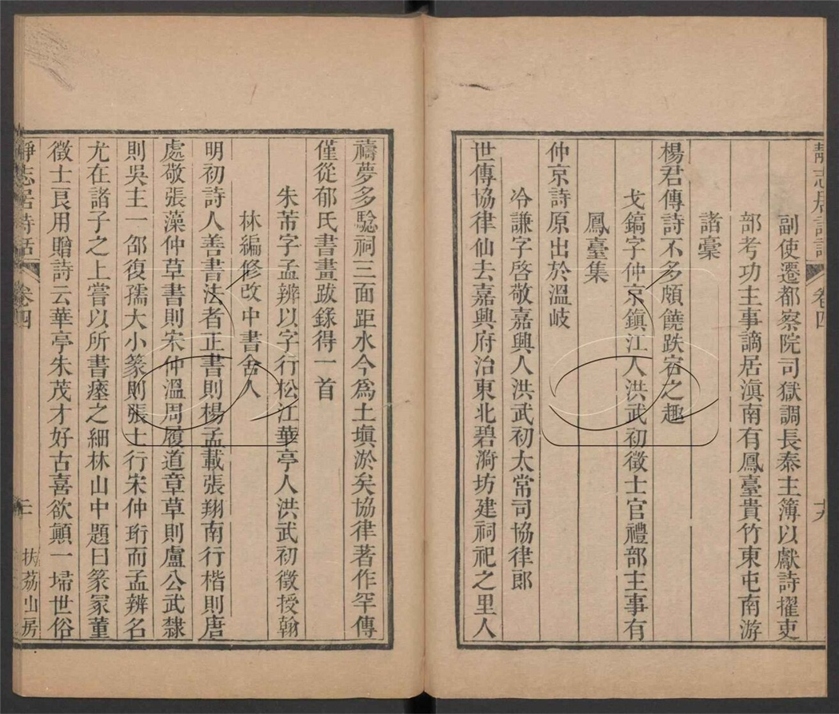 靜志居詩話 卷四 十九
副使遷都察院司獄調長泰主簿以獻詩擢吏
部考功主事謫居滇南有鳳臺貴竹東屯南游
諸稾
楊君傳詩不多頗饒跌宕之趣
戈鎬字仲京鎮江人洪武初徵士官禮部主事有
鳳臺集
仲京詩原出於溫岐
冷謙字啓敬嘉興人洪武初太常司協律郎
世傳協律仙去嘉興府治東北碧漪坊建祠祀之里人
禱夢多驗祠三面距水今爲土塡淤矣協律著作罕傳
僅從郁氏書畫跋錄得一首
朱芾字孟辨以字行松江華亭人洪武初徵授翰
林編修改中書舍人
明初詩人善書法者正書則楊孟載張翔南行楷則唐
處敬張藻仲草書則宋仲溫周履道章草則盧公武隸
則吳主一邵復孺大小篆則張士行宋仲珩而孟辨名
尤在諸子之上嘗以所書瘞之細林山中題曰篆冢董
徵士良用贈詩云華亭朱茂才好古喜欲顛一埽世俗
靜志居詩話 卷四 扶荔山房